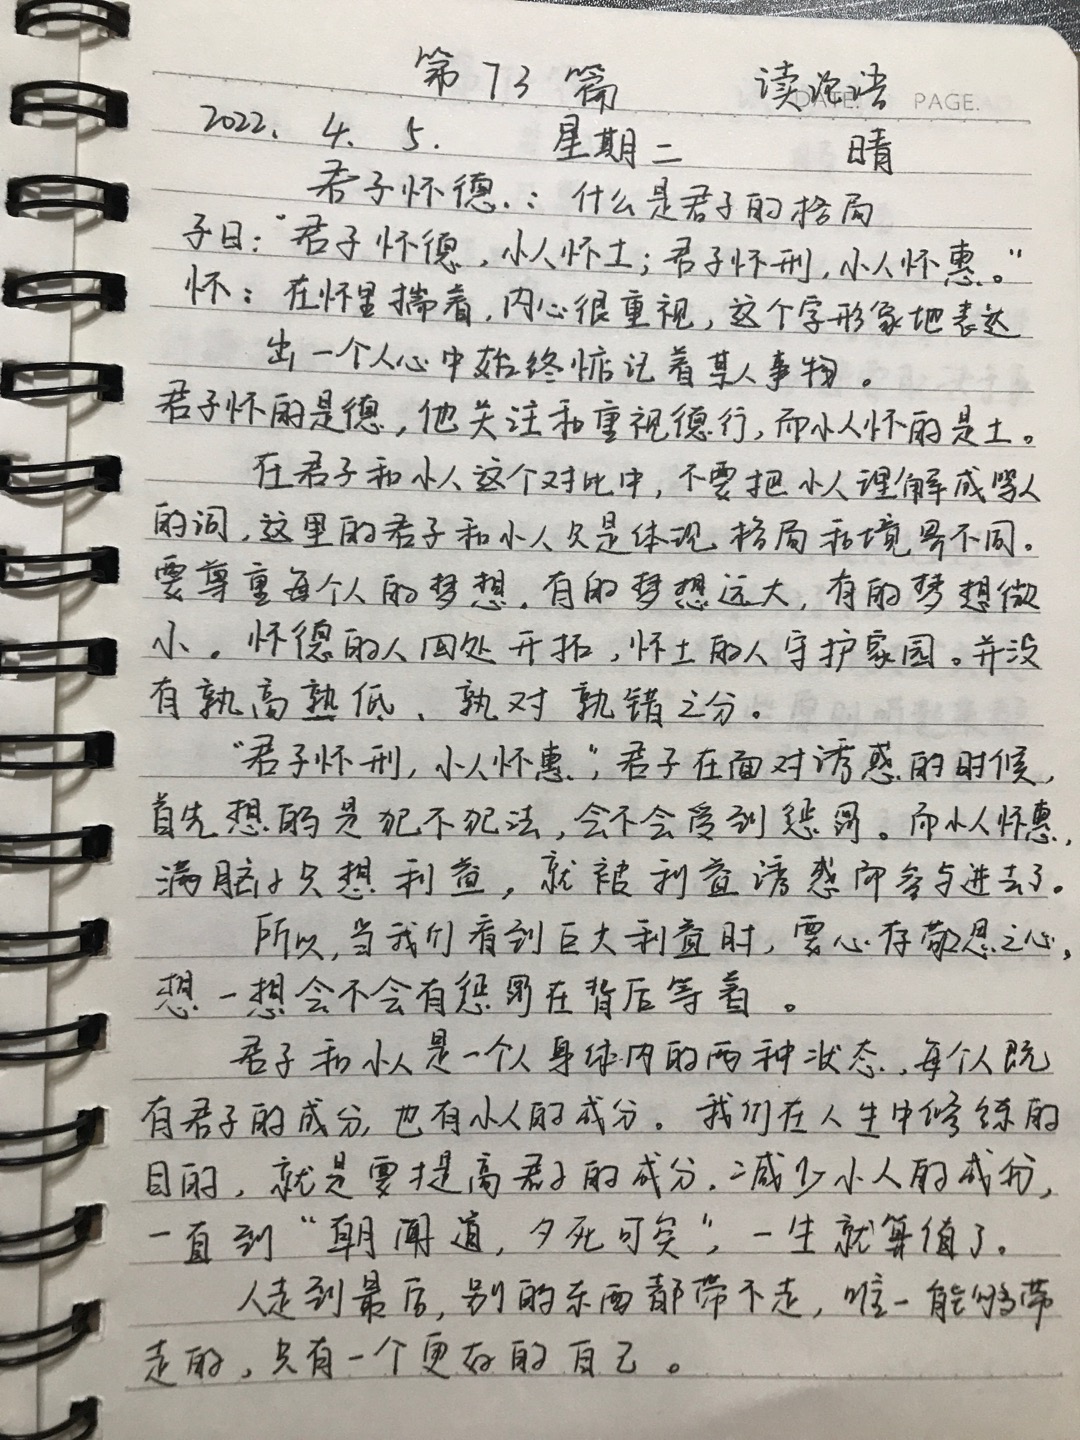 第73篇 读论语
DATE. PAGE.
2022. 4. 5. 星期二 晴
君子怀德.：什么是君子的格局
子曰：“君子怀德，小人怀土；君子怀刑，小人怀惠。”
怀：在怀里揣着，内心很重视，这个字形象地表达
出一个人心中始终惦记着某人事物。
君子怀的是德，他关注和重视德行，而小人怀的是土。
在君子和小人这个对比中，不要把小人理解成骂人
的词，这里的君子和小人只是体现格局和境界不同。
要尊重每个人的梦想，有的梦想远大，有的梦想微
小。怀德的人四处开拓，怀土的人守护家园。并没
有孰高孰低、孰对孰错之分。
“君子怀刑，小人怀惠”，君子在面对诱惑的时候，
首先想的是犯不犯法，会不会受到惩罚。而小人怀惠，
满脑子只想利益，就被利益诱惑而参与进去了。
所以，当我们看到巨大利益时，要心存敬畏之心，
想一想会不会有惩罚在背后等着。
君子和小人是一个人身体内的两种状态，每个人既
有君子的成分，也有小人的成分。我们在人生中修练的
目的，就是要提高君子的成分，减少小人的成份，
一直到“朝闻道，夕死可矣”，一生就算值了。
人走到最后，别的东西都带不走，唯一能够带
走的，只有一个更好的自己。